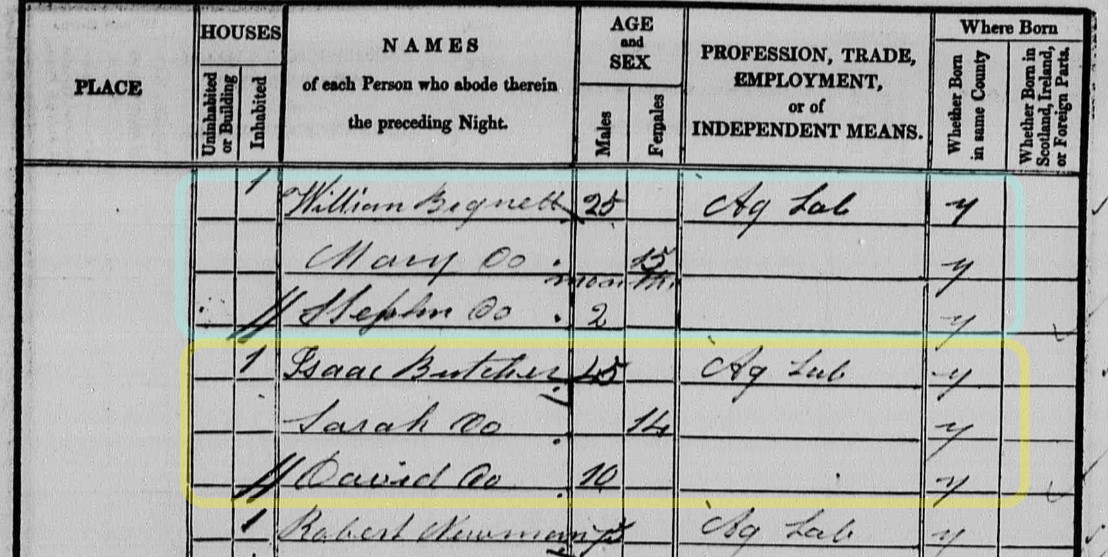 PLACE
HOUSES
Uninhabited or Building
Inhabited
NAMES
of each Person who abode therein
the preceding Night.
AGE
and
SEX
Males
Females
PROFESSION, TRADE,
EMPLOYMENT,
or of
INDEPENDENT MEANS.
Where Born
Whether Born
in same County
Whether Born in
Scotland, Ireland,
or Foreign Parts.
1 William Bignell 25 Ag Lab y
Mary Do 15 y
months
// Stephn Do 2 y
1 Isaac Butcher 45 Ag Lab y
Sarah Do 14 y
// David Do 10 y
1 Robert Newman Ag Lab y